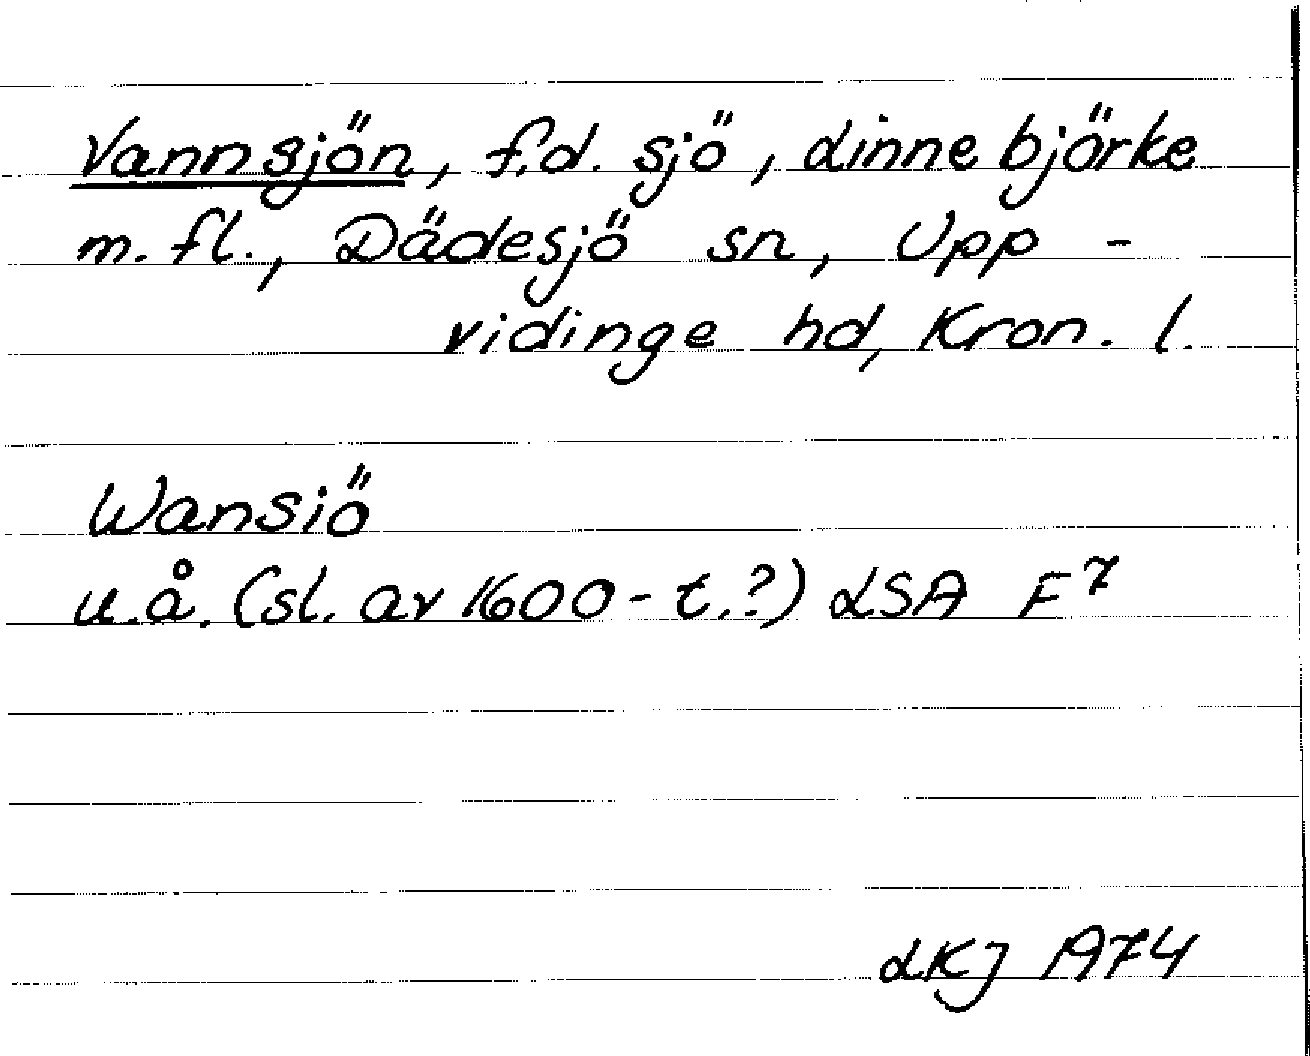 Vannsjön, f.d. sjö, Linnebjörke
m.fl., Dädesjö sn, Upp-
vidinge hd, Kron. l.
Wansiö
u.å. (sl. av 1600-t.?) LSA F⁷
LKJ 1974